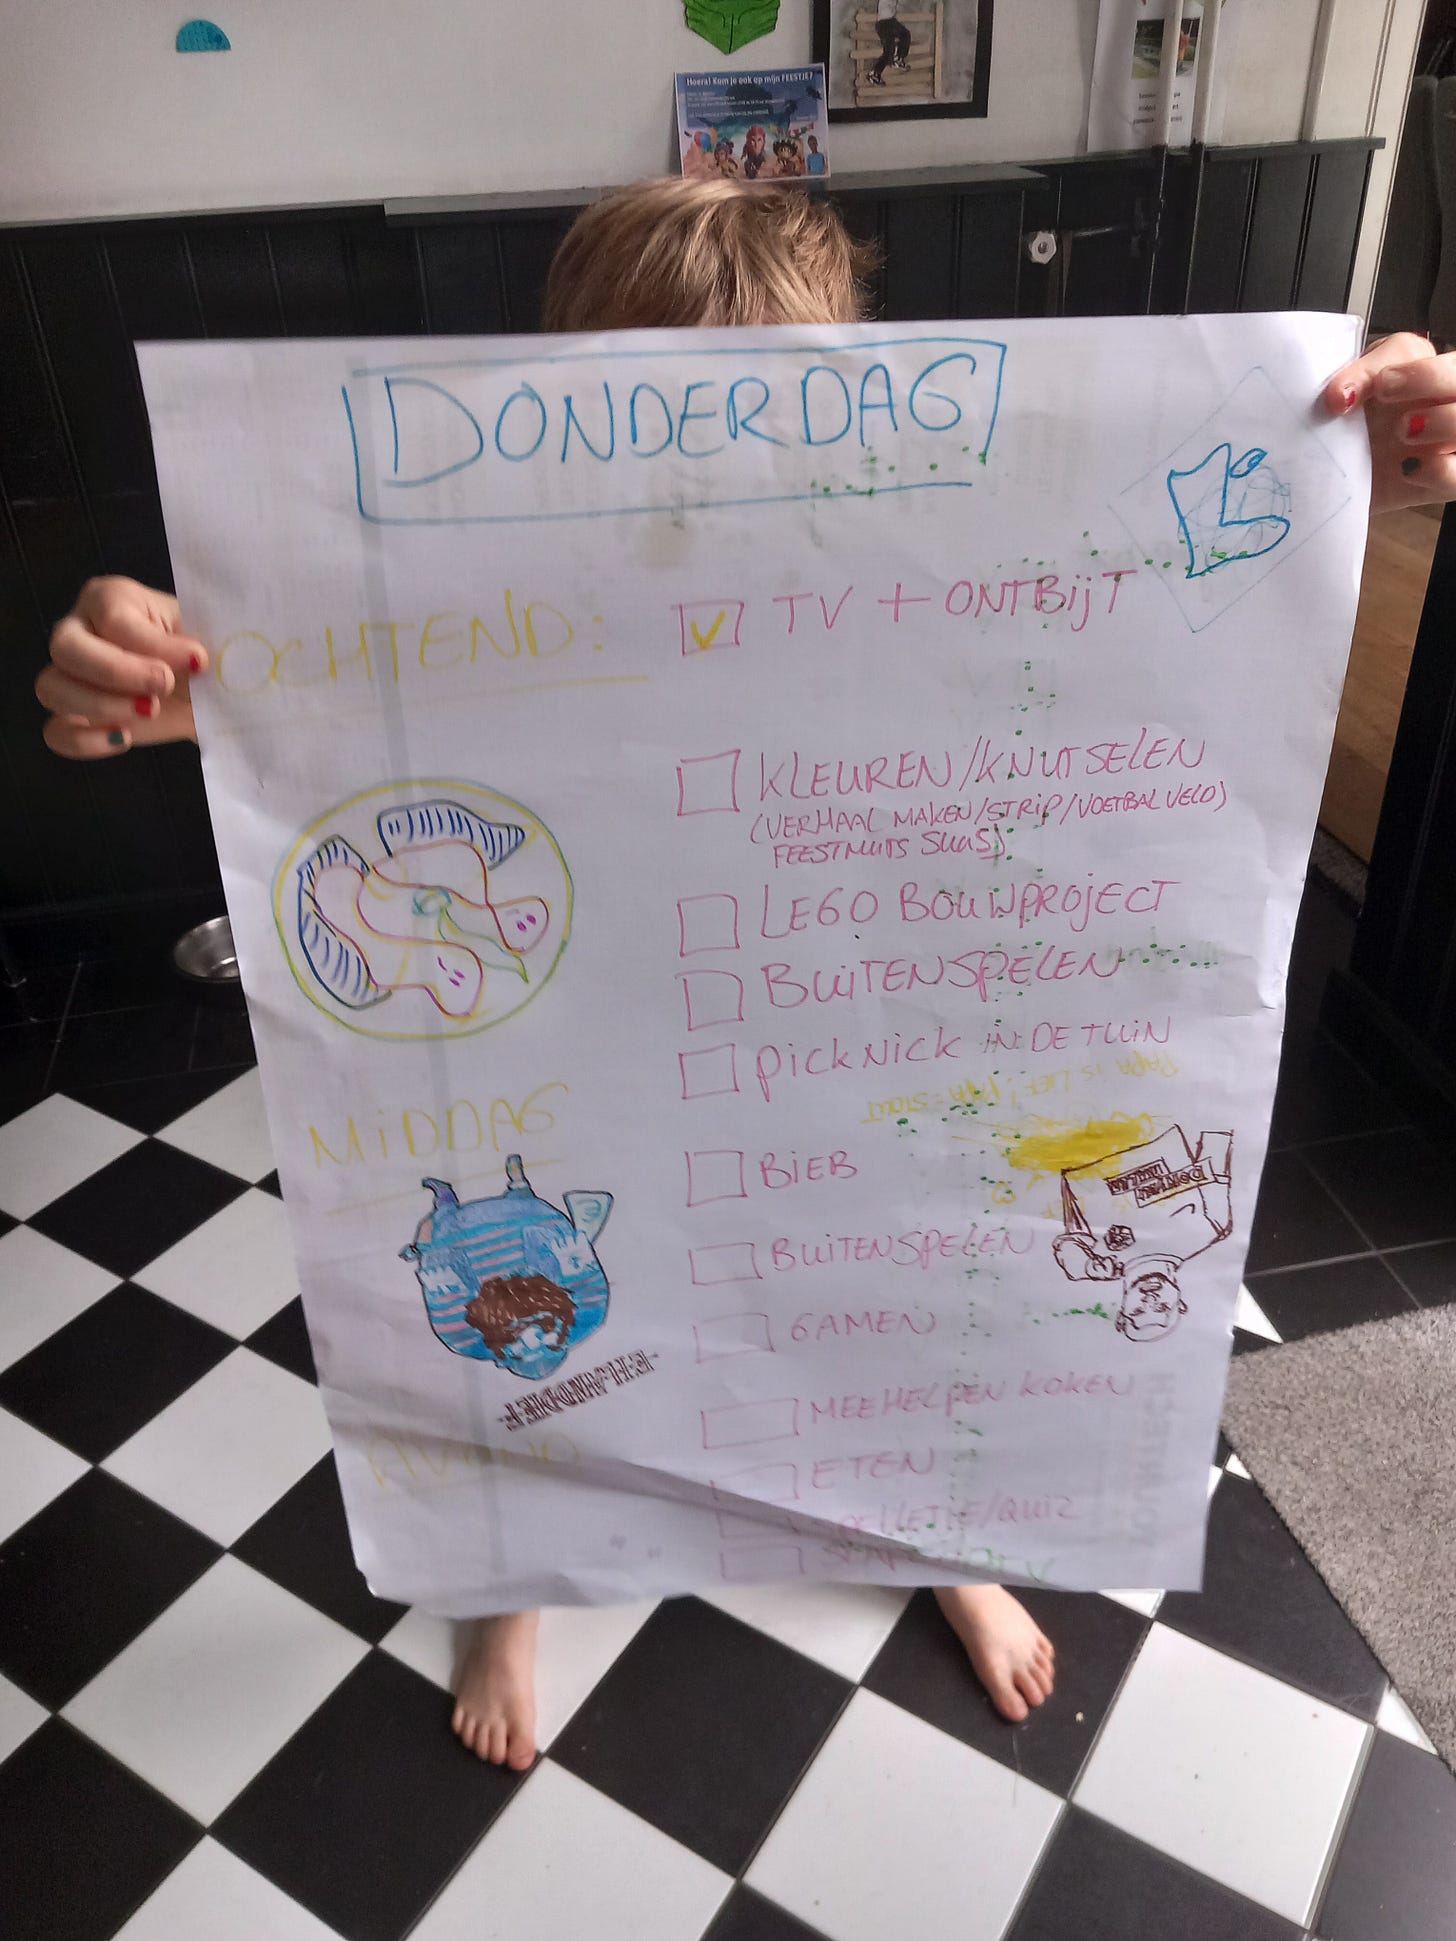 Hoera! Kom je ook op mijn FEESTJE?
DONDERDAG
OCHTEND:
TV + ONTBIJT
KLEUREN/KNUTSELEN
(VERHAAL MAKEN/STRIP/VOETBALVELD)
FEESTMUTS
LEGO BOUWPROJECT
BUITENSPELEN
PICKNICK IN DE TUIN
PAPA IS LIEF! PAPA = STOUT
MIDDAG
BIEB
BUITENSPELEN
GAMEN
AVOND
MEEHELPEN KOKEN
ETEN
SPELLETJE/QUIZ